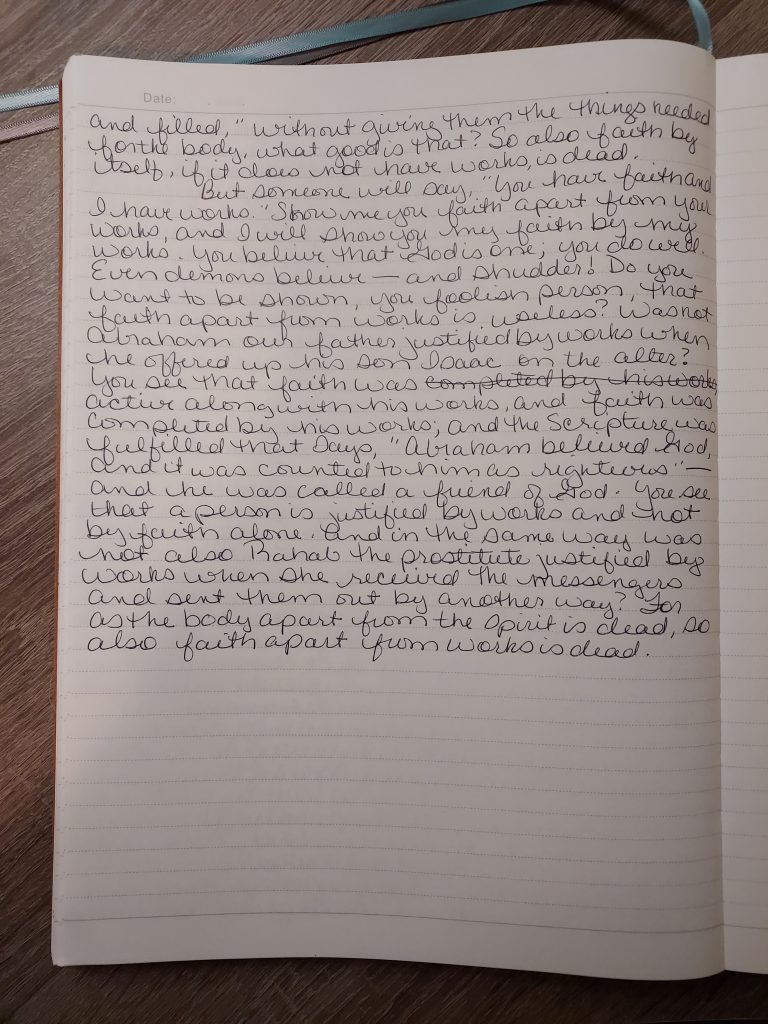 Date:
and filled," without giving them the things needed
for the body, what good is that? So also faith by
itself, if it does not have works, is dead.
But someone will say, "You have faith and
I have works." Show me you faith apart from your
works, and I will show you my faith by my
works. You believe that God is one; you do well.
Even demons believe — and shudder! Do you
want to be shown, you foolish person, that
faith apart from works is useless? Was not
Abraham our father justified by works when
he offered up his son Isaac on the alter?
You see that faith was completed by his works,
active along with his works, and faith was
completed by his works; and the Scripture was
fulfilled that Says, "Abraham believed God,
and it was counted to him as righteous" —
and he was called a friend of God. You see
that a person is justified by works and not
by faith alone. And in the same way was
not also Rahab the prostitute justified by
works when she received the messengers
and sent them out by another way? For
as the body apart from the spirit is dead, so
also faith apart from works is dead.